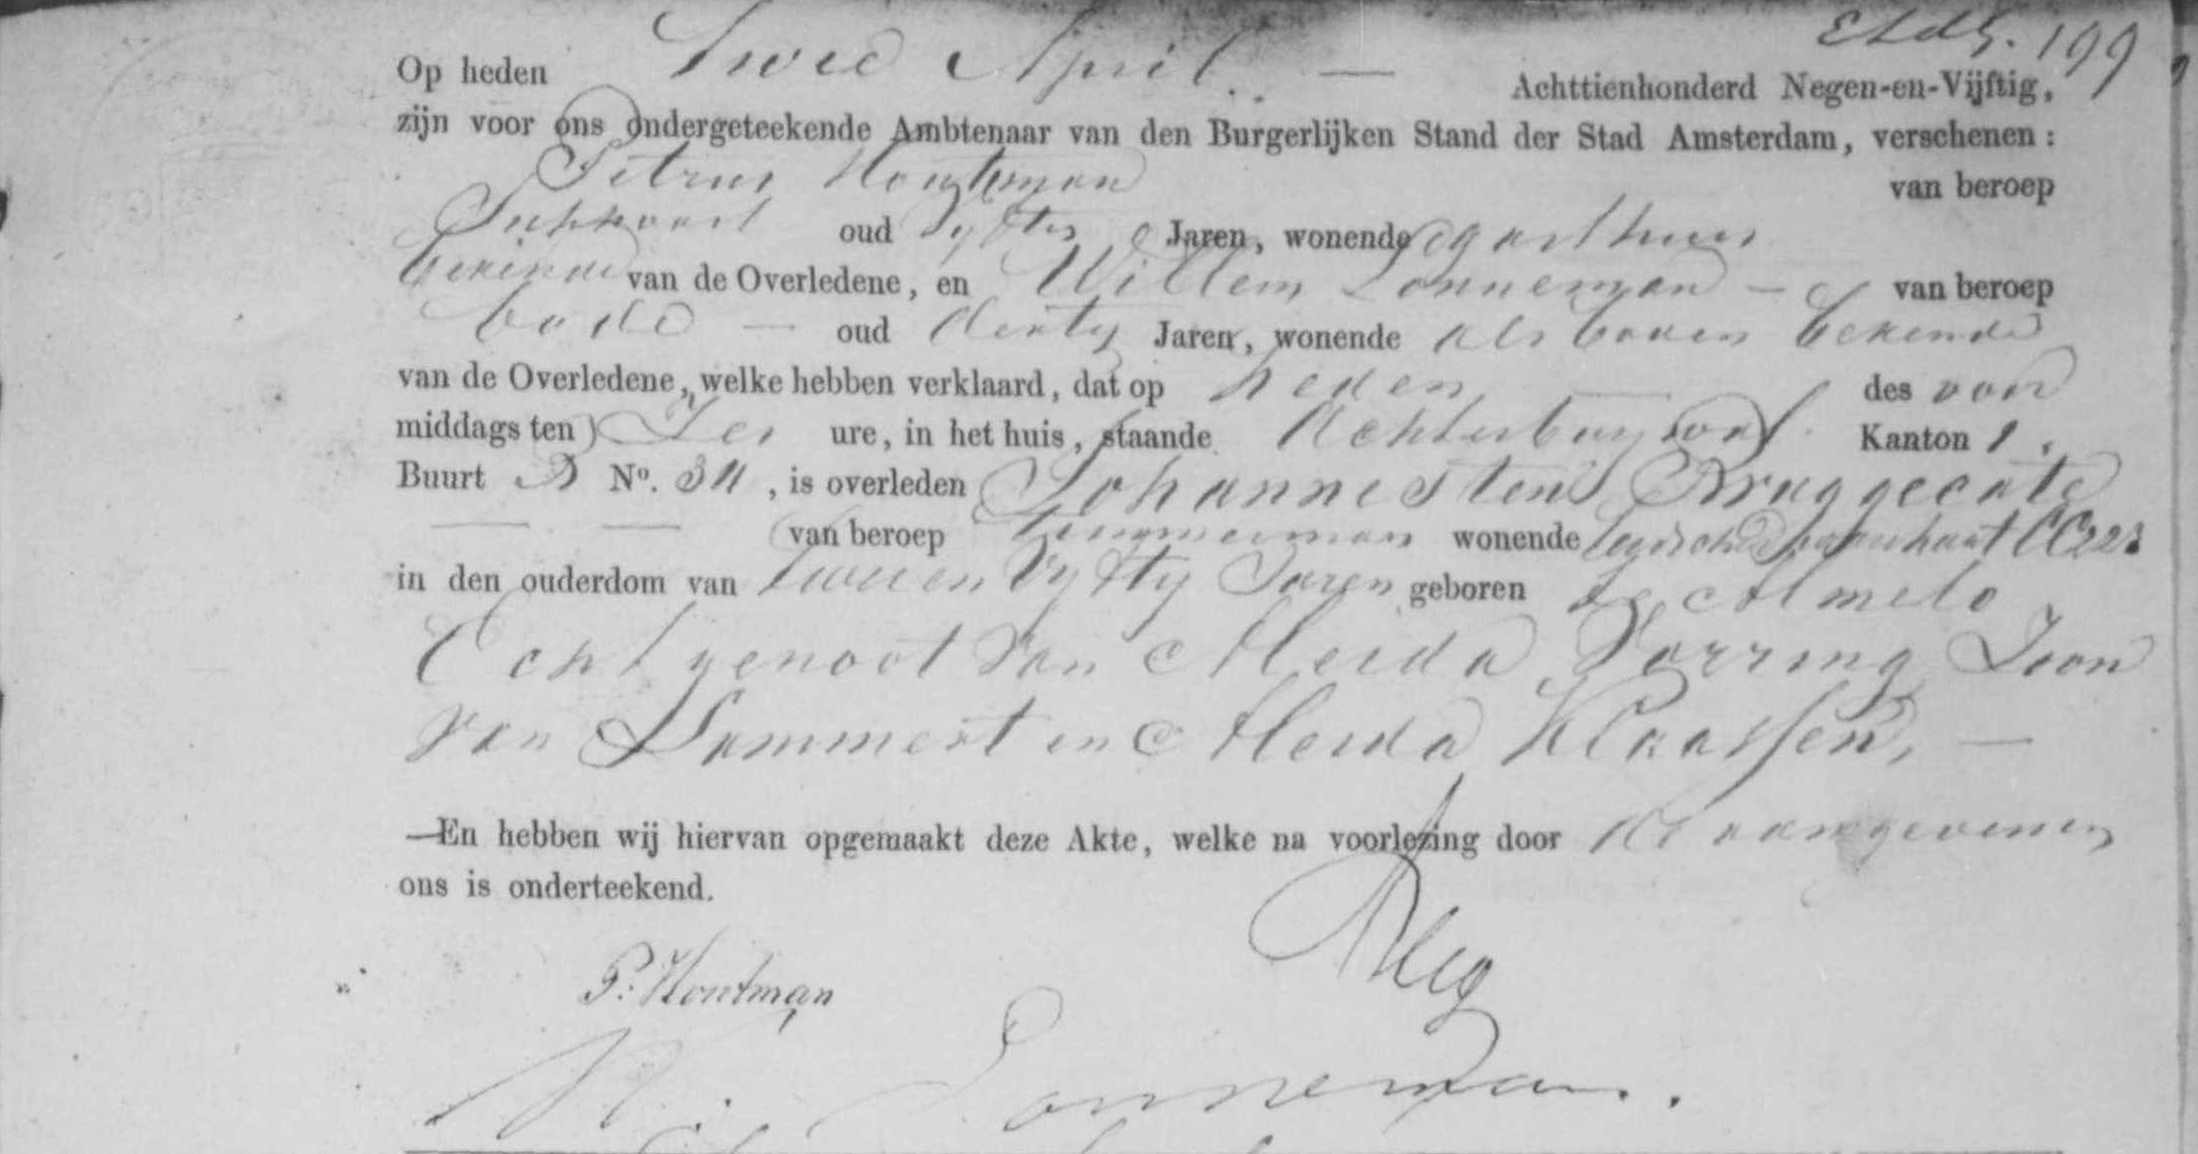 199
Op heden Twee April — Achttienhonderd Negen-en-Vijftig,
zijn voor ons ondergeteekende Ambtenaar van den Burgerlijken Stand der Stad Amsterdam, verschenen:
Petrus Houtman van beroep
oud Jaren, wonende gasthuis
bekende van de Overledene, en Willem Lonneman — van beroep
bode — oud dertig Jaren, wonende als boven bekende
van de Overledene, welke hebben verklaard, dat op heden — des voor
middags ten Zes ure, in het huis, staande Achterburgwal Kanton 1.
Buurt B No. 34, is overleden Johannes ten Bruggecate
— — van beroep Timmerman wonende
in den ouderdom van twee en Vyftig Jaren geboren te Almelo
Echtgenoot van Aleida Zoon
van Lammert en Aleida Klaassen, —
—En hebben wij hiervan opgemaakt deze Akte, welke na voorlezing door de aangevenen
ons is onderteekend.
P: Houtman
W. Lonneman.